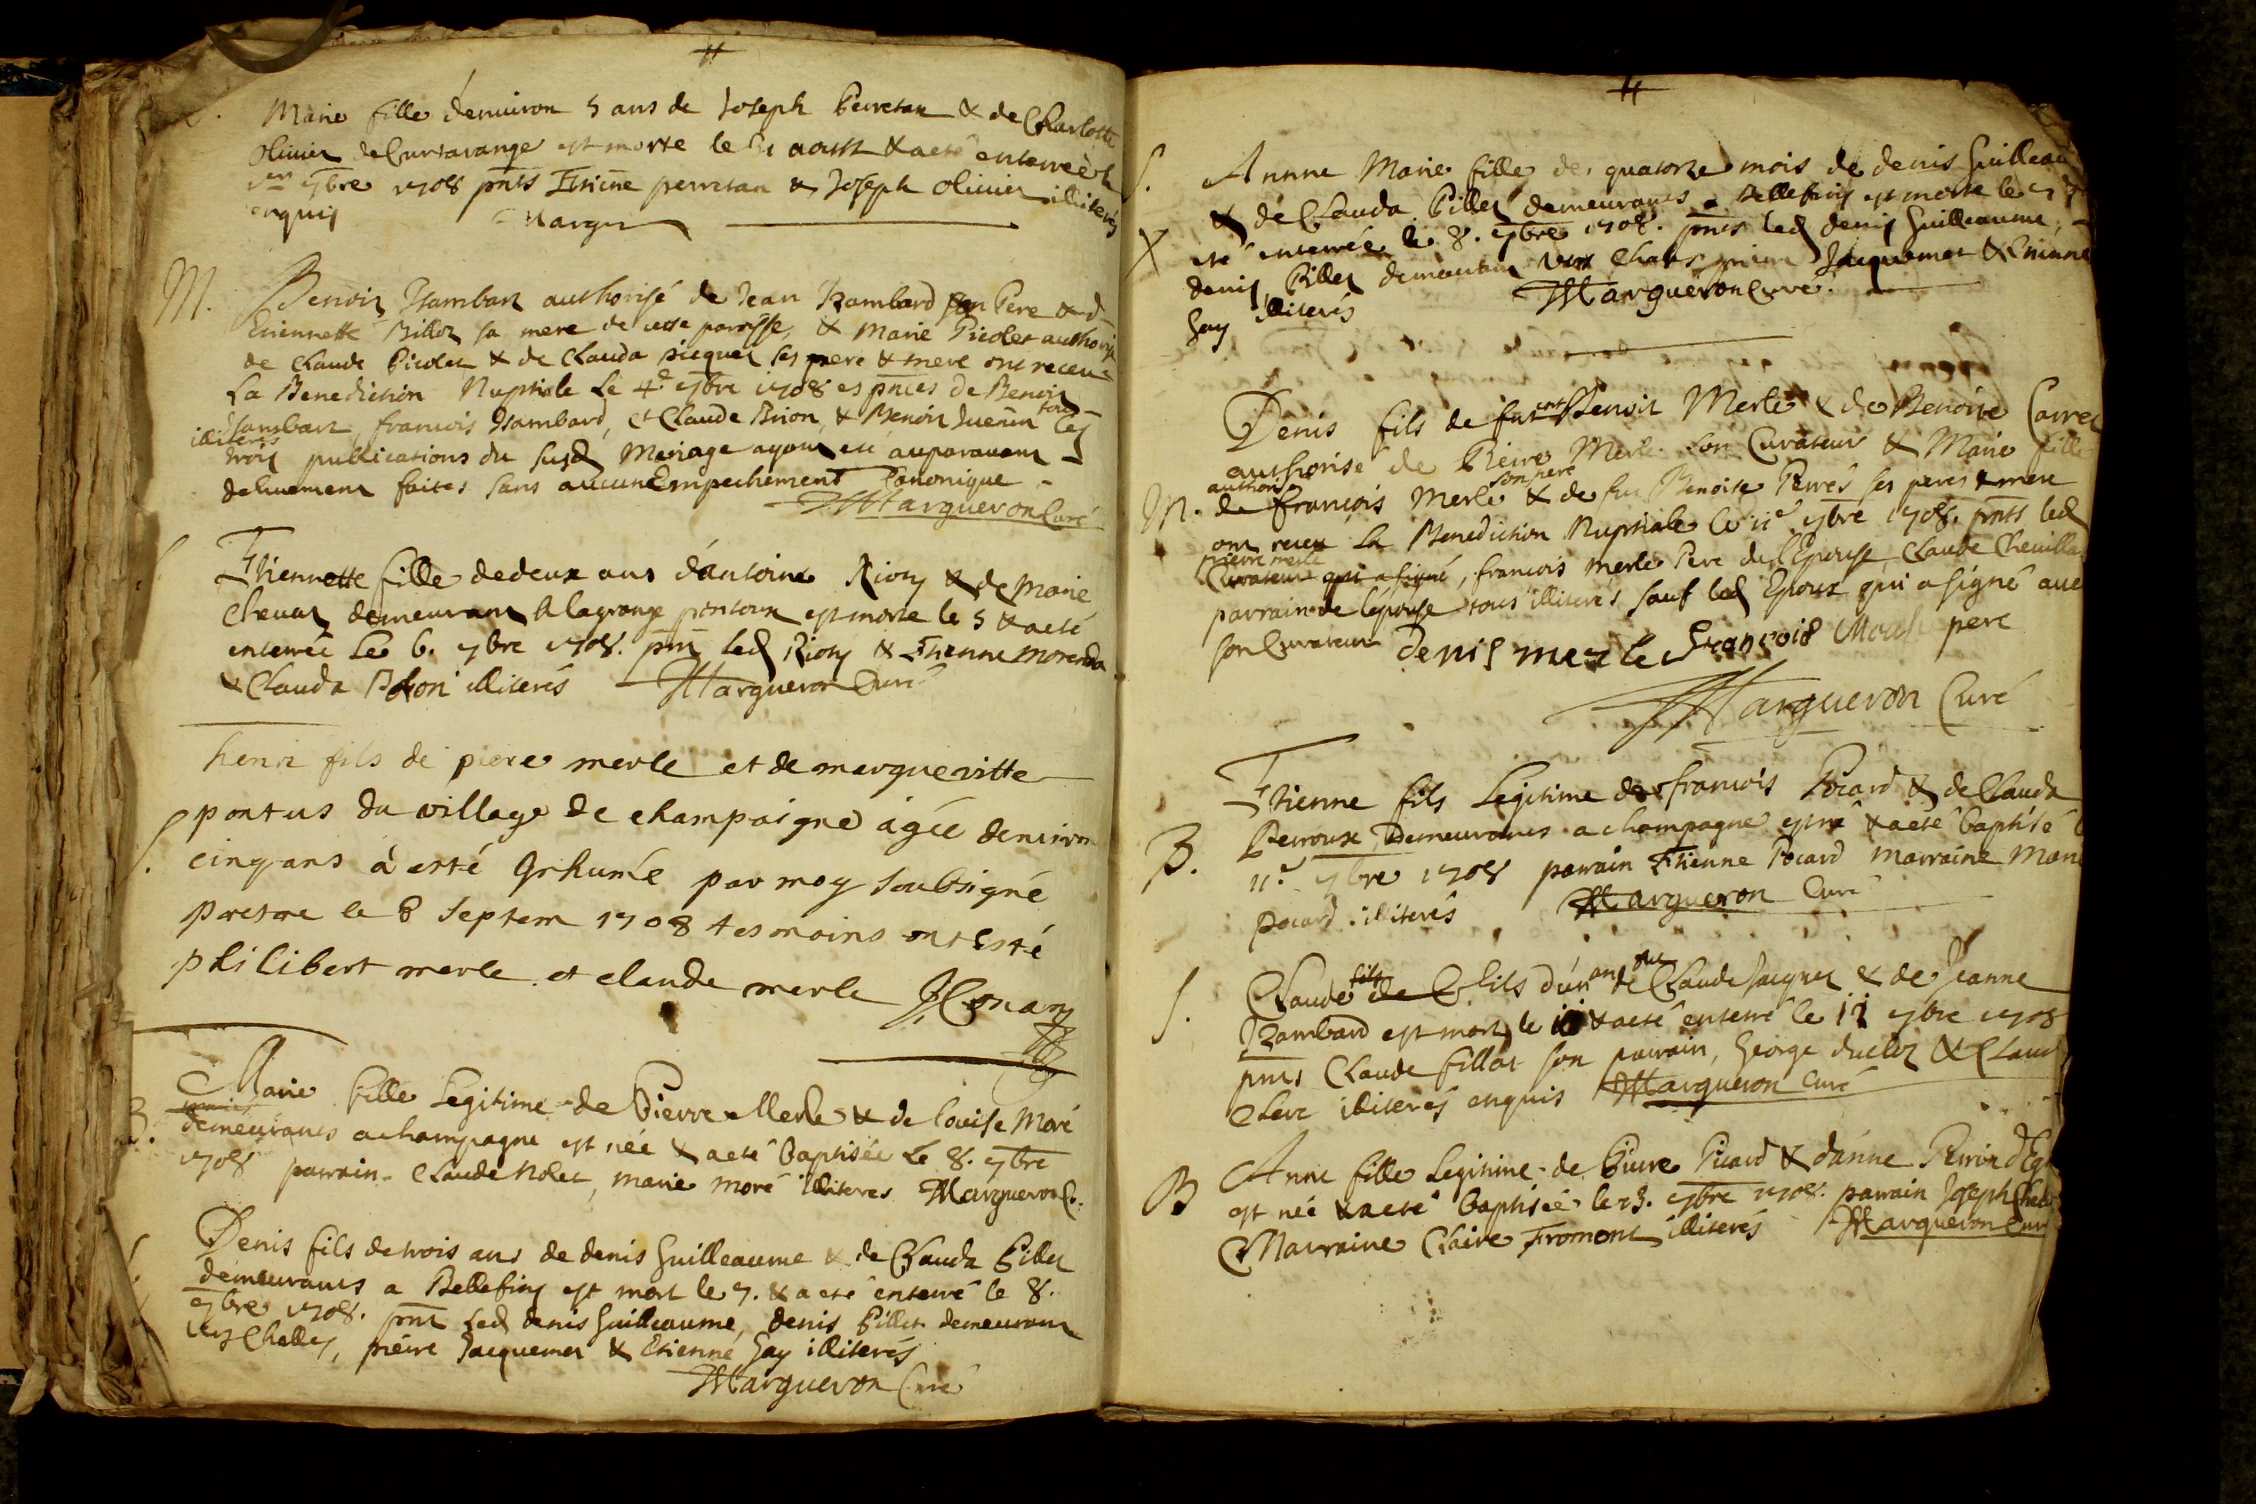 S. Marie fille d'enuiron 5 ans de Joseph Perretan & de Charlotte
Oliuier de Curtarange est morte le 31 aoust & a eté enterreé le
1er 7bre 1708 pnts Etiene perretan & Joseph Oliuier illiterés
enquis Margn
M. Benoit Isambart authorisé de Jean Izambard son Pere & d
Etiennette Billot sa mere de cette parroisse, & Marie Picolet authorisé
de Claude Picolet & de Clauda picquet ses pere & mere ont receu
La Benediction Nuptiale Le 4e 7bre 1708 es pnces de Benoit
Isambart, francois Isambard, et Claude Brion, & Benoit Juenin tous
illiteres Les
trois publications du susd Mariage ayant eté auparauant
deüement faites sans aucun Empechement Canonique
Margueron Curé
S. Etiennette fille de deux ans d'Antoine Rioty & de Marie
Cheuat demeurant A lagrange pontoux est morte le 5 & a eté
enterreé Le 6. 7bre 1708. pnt led Rioty & Etienne Morendat
& Clauda illiterés Margueron Curé
henri fils de piere merle et de marguevitte
pontus du village de champaigne agée denviron
S. cinq ans à esté Inhumée par moy soubsigné
prestre le 8 Septem 1708 tesmoins ont esté
philibert merle et claude merle JConary
Marie fille Legitime de Pierre Merle & de louise Moré
B. demeurants a champagne est née & a eté Baptisée Le 8. 7bre
1708 parrain Claude Nolet, marie moré illiteres Margueron C.
S. Denis fils de trois ans de denis Guilleaume & de Clauda Pillet
demeurants a Bellefins est mort le 7. & a eté enterré le 8.
7bre 1708. pnt Led denis Guilleaume, denis Pillet demeurant
vers Challes, pierre Jacquemet & Etienne Gay illiterés
Margueron Curé
S. Annne Marie fille de quatorze mois de denis Guilleau
& de Clauda Pillet demeurants a Bellefins est morte le 7
X eté enterreé le 8. 7bre 1708. pnts led denis Guilleaume,
denis Pillet demeurant vers Chales pierre Jacquemet & Etienne
Gay illiterés Margueron Curé.
Denis fils de fut Benoit Merle & de Benoite Carret
authorisé de Pierre Merle son Curateur & Marie fille
authorisé son pere
M. de françois Merle & de fut Benoite Perrés ses peres & mere
ont receu La Benediction Nuptiale le 11e 7bre 1708. pnts led
pierre merle
Curateur qui a signé, francois merle Pere de l'Epouse, Claude Cheuilla
parrain de l'epouse tous illiterés sauf led Epoux qui a signé auec
son Curateur denis merle François Merle pere
Margueron Curé
Etienne fils Legitime de francois Pocard & de Clauda
Perroux Demeurants a champagne est né & a eté baptisé
B. 11e 7bre 1708 parrain Etienne Pocard marraine Marie
Pocard illiterés Margueron Curé
fils
S. Claude de fils d'un an de Claude Jacquet & de Jeanne
Izambard est mort le & a eté enterré le 11 7bre 1708
pnts Claude fillot son parrain, George ducloz & Claude
Clerc illiterés enquis Margueron Curé
B Anne fille Legitime de Pierre Picard & d'anne Perrin
est née & a eté baptisée le 13. 7bre 1708. parrain Joseph
Marraine Claire Fromont illiterés Margueron Curé